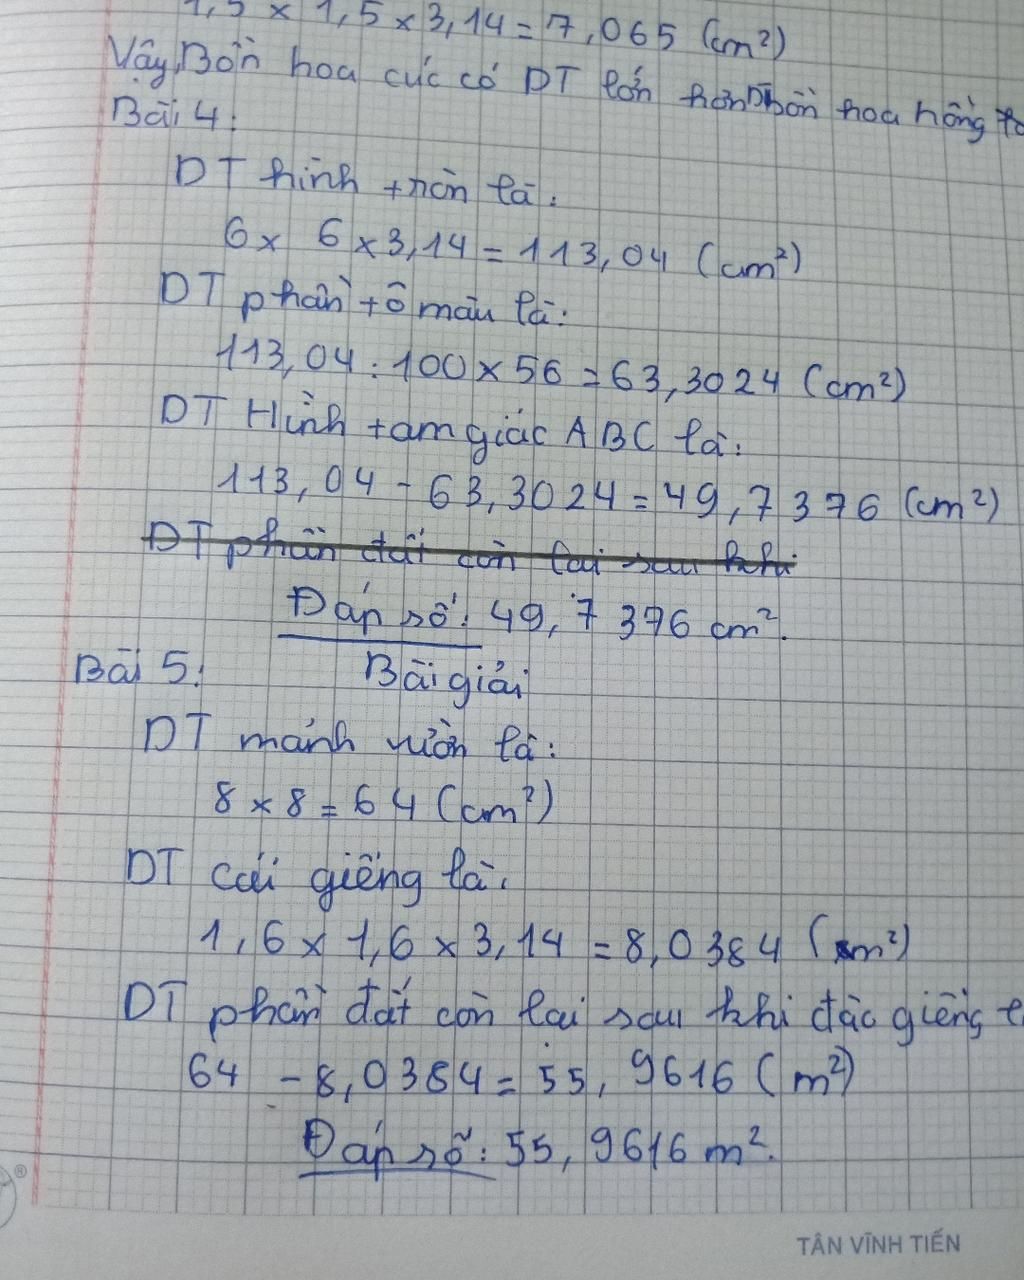 1,5 x 1,5 x 3,14 = 7,065 (cm²)
Vậy, Bồn hoa cúc có DT lớn hơn bồn hoa hồng
Bài 4:
DT hình tròn là:
6 x 6 x 3,14 = 113,04 (cm²)
DT phần tô màu là:
113,04 : 100 x 56 = 63,3024 (cm²)
DT Hình tam giác ABC là:
113,04 - 63,3024 = 49,7376 (cm²)
DT phần đất còn lại sau khi
Đáp số: 49,7376 cm².
Bài 5: Bài giải
DT mảnh vườn là:
8 x 8 = 64 (cm²)
DT cái giếng là:
1,6 x 1,6 x 3,14 = 8,0384 (m²)
DT phần đất còn lại sau khi đào giếng
64 - 8,0384 = 55,9616 (m²)
Đáp số: 55,9616 m².
TÂN VĨNH TIẾN